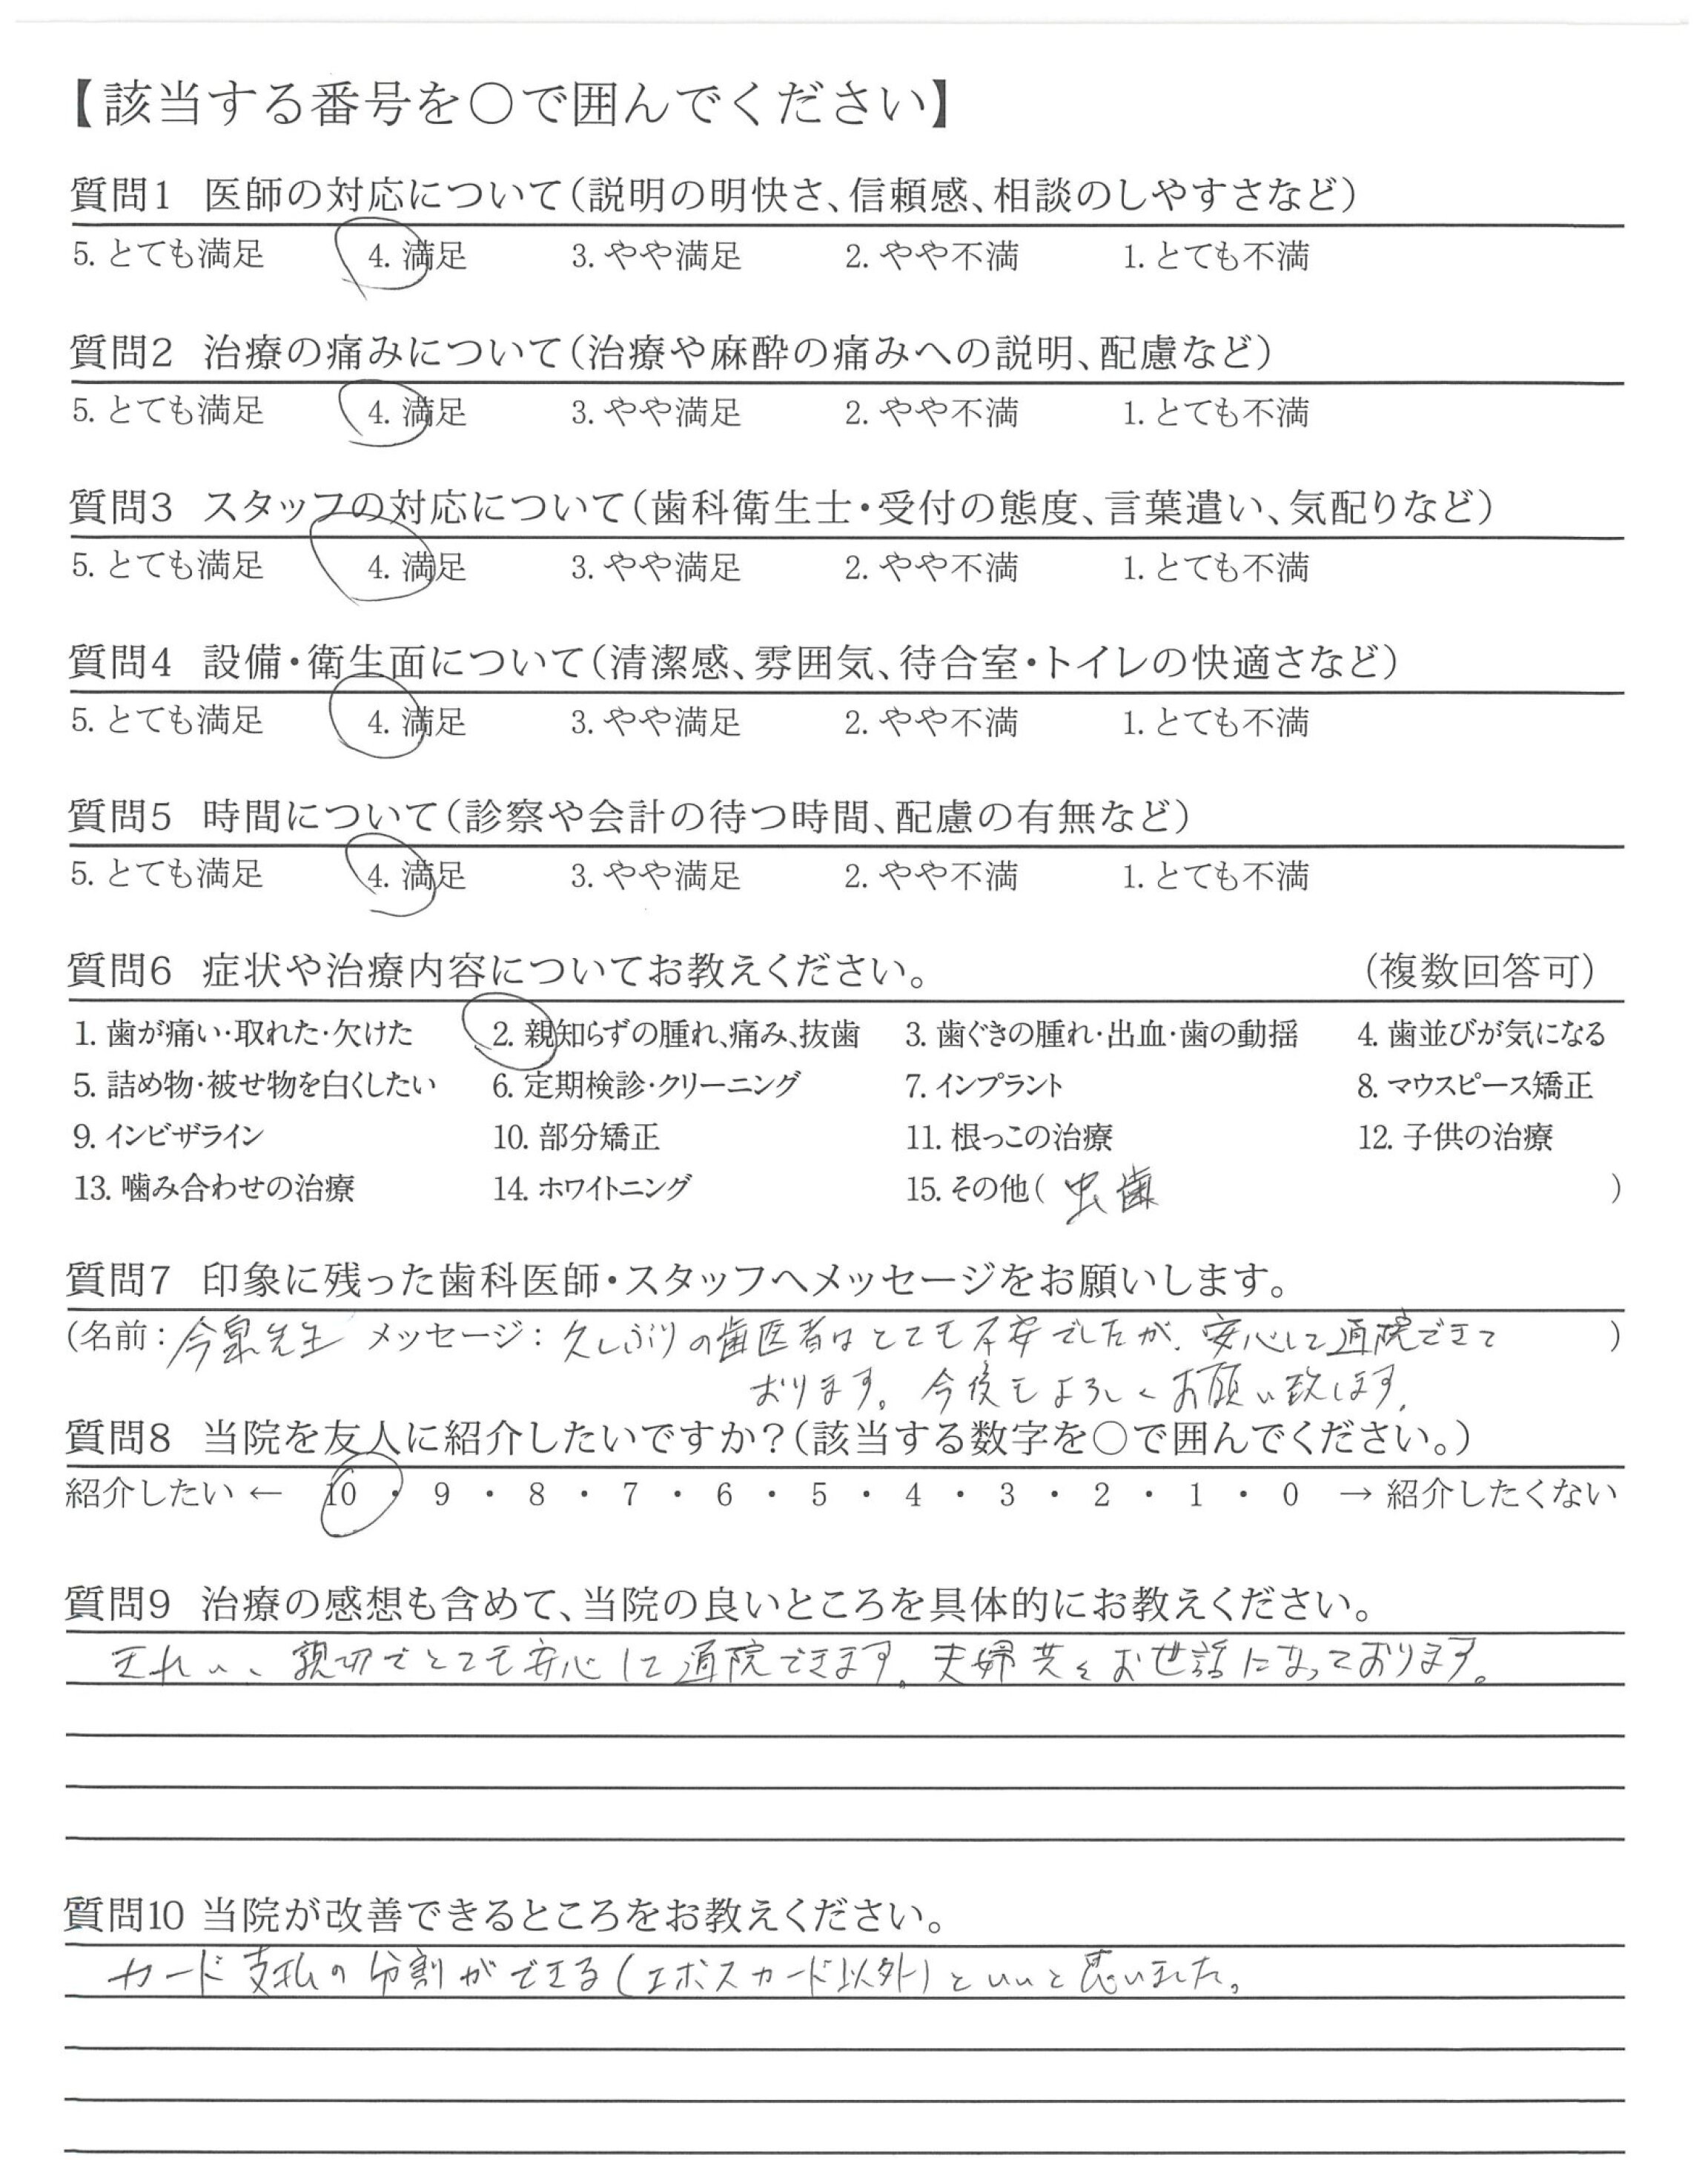 【該当する番号を○で囲んでください】
質問1 医師の対応について(説明の明快さ、信頼感、相談のしやすさなど)
5. とても満足 4. 満足 3. やや満足 2. やや不満 1. とても不満
質問2 治療の痛みについて(治療や麻酔の痛みへの説明、配慮など)
5. とても満足 4. 満足 3. やや満足 2. やや不満 1. とても不満
質問3 スタッフの対応について(歯科衛生士・受付の態度、言葉遣い、気配りなど)
5. とても満足 4. 満足 3. やや満足 2. やや不満 1. とても不満
質問4 設備・衛生面について(清潔感、雰囲気、待合室・トイレの快適さなど)
5. とても満足 4. 満足 3. やや満足 2. やや不満 1. とても不満
質問5 時間について(診察や会計の待つ時間、配慮の有無など)
5. とても満足 4. 満足 3. やや満足 2. やや不満 1. とても不満
質問6 症状や治療内容についてお教えください。 (複数回答可)
1. 歯が痛い・取れた・欠けた 2. 親知らずの腫れ、痛み、抜歯 3. 歯ぐきの腫れ・出血・歯の動揺 4. 歯並びが気になる
5. 詰め物・被せ物を白くしたい 6. 定期検診・クリーニング 7. インプラント 8. マウスピース矯正
9. インビザライン 10. 部分矯正 11. 根っこの治療 12. 子供の治療
13. 噛み合わせの治療 14. ホワイトニング 15. その他( 虫歯 )
質問7 印象に残った歯科医師・スタッフへメッセージをお願いします。
(名前:今泉先生 メッセージ:久しぶりの歯医者はとても不安でしたが、安心して通院できて )
おります。今後もよろしくお願い致します。
質問8 当院を友人に紹介したいですか?(該当する数字を○で囲んでください。)
紹介したい ← 10 ・ 9 ・ 8 ・ 7 ・ 6 ・ 5 ・ 4 ・ 3 ・ 2 ・ 1 ・ 0 → 紹介したくない
質問9 治療の感想も含めて、当院の良いところを具体的にお教えください。
きれい、親切でとても安心して通院できます。夫婦共々お世話になっております。
質問10 当院が改善できるところをお教えください。
カード支払の分割ができる(エポスカード以外)といいと思いました。